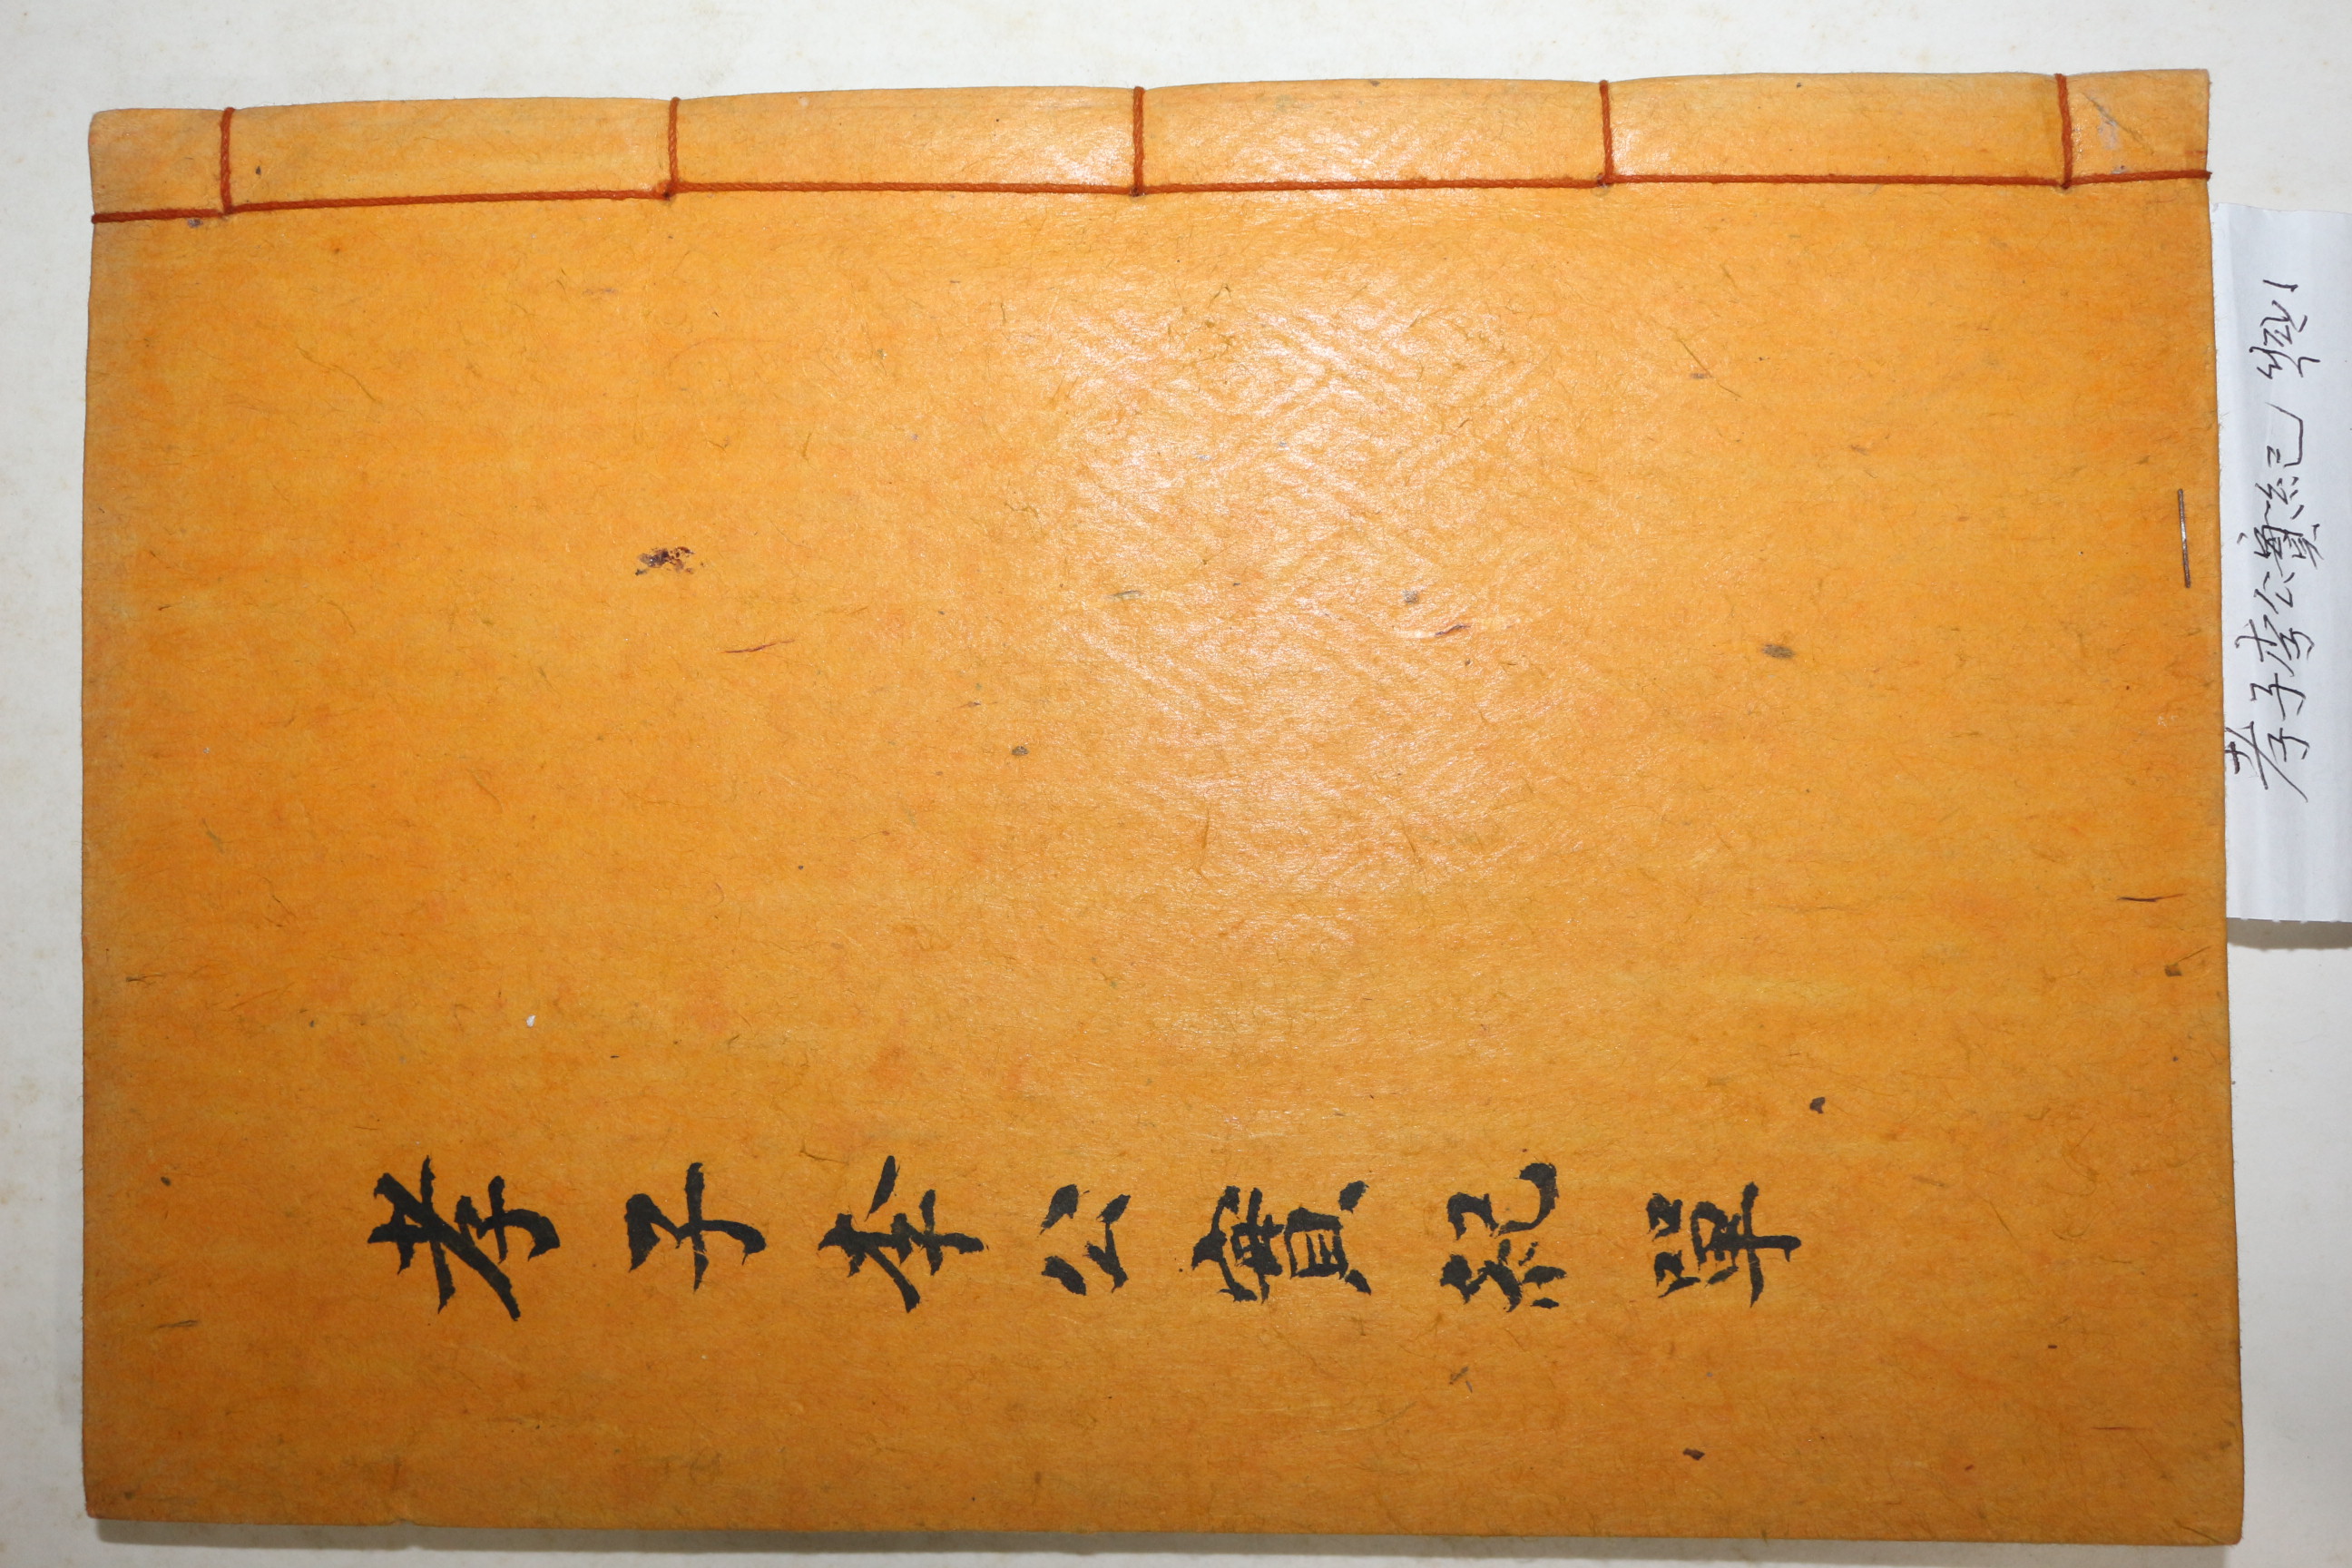 孝子李公實紀單
孝子李公實紀